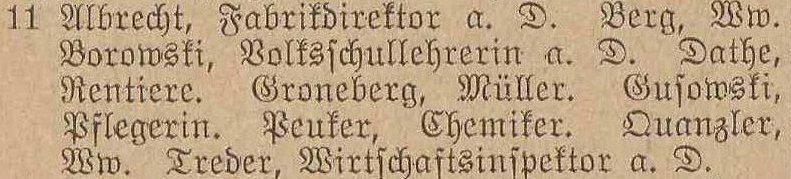 11 Albrecht, Fabrikdirektor a. D. Berg, Ww.
Borowski, Volksschullehrerin a. D. Dathe,
Rentiere. Groneberg, Müller. Gusowski,
Pflegerin. Peuker, Chemiker. Quanzler,
Ww. Treder, Wirtschaftsinspektor a. D.